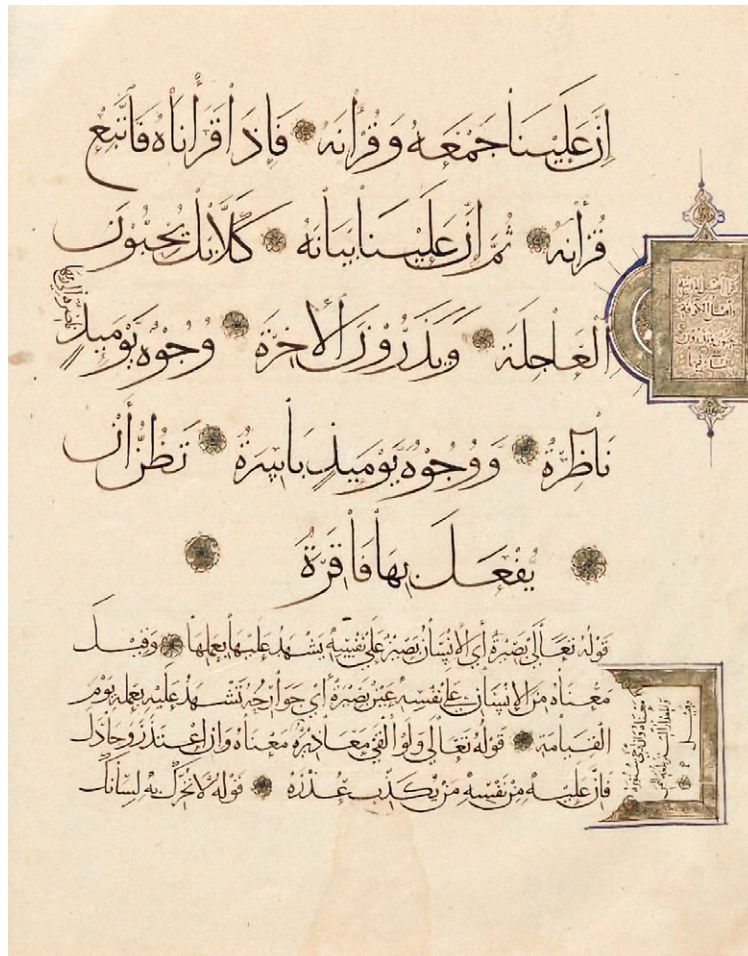 اِنَّ عَلَيْنَا جَمْعَهُ وَقُرْاٰنَهُ فَاِذَا قَرَأْنَاهُ فَاتَّبِعْ
قُرْاٰنَهُ ثُمَّ اِنَّ عَلَيْنَا بَيَانَهُ كَلَّا بَلْ تُحِبُّوْنَ
الْعَاجِلَةَ وَتَذَرُوْنَ الْاٰخِرَةَ وُجُوْهٌ يَوْمَئِذٍ
نَاضِرَةٌ اِلٰى رَبِّهَا
نَاظِرَةٌ وَوُجُوْهٌ يَوْمَئِذٍ بَاسِرَةٌ تَظُنُّ أَنْ
يُفْعَلَ بِهَا فَاقِرَةٌ
قَوْلُهُ تَعَالَى بَصِيْرَةٌ أَيِ الْاِنْسَانُ بَصِيْرٌ عَلَى نَفْسِهِ يَشْهَدُ عَلَيْهَا بِعَمَلِهَا وَقِيْلَ
مَعْنَاهُ مِنَ الْاِنْسَانِ عَلَى نَفْسِهِ عَيْنٌ بَصِيْرَةٌ أَيْ جَوَارِحُهُ تَشْهَدُ عَلَيْهِ بِعَمَلِهِ يَوْمَ
الْقِيَامَةِ قَوْلُهُ تَعَالَى وَلَوْ اَلْقٰى مَعَاذِيْرَهُ مَعْنَاهُ وَاِنِ اعْتَذَرَ وَجَادَلَ
فَاِنَّ عَلَيْهِ مِنْ نَفْسِهِ مَنْ يُكَذِّبُ عُذْرَهُ قَوْلُهُ لَا تُحَرِّكْ بِهِ لِسَانَكَ